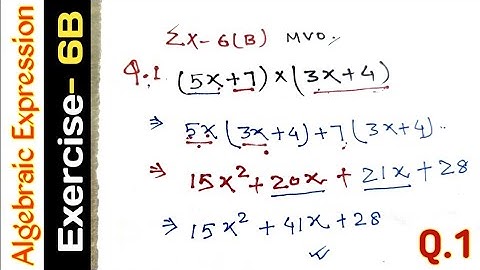 Algebraic Expression
Exercise- 6B
Ex-6(B)
Q.1 (5x+7)×(3x+4)
⇒ 5x(3x+4)+7(3x+4)
⇒ 15x²+20x+21x+28
⇒ 15x²+41x+28
Q.1